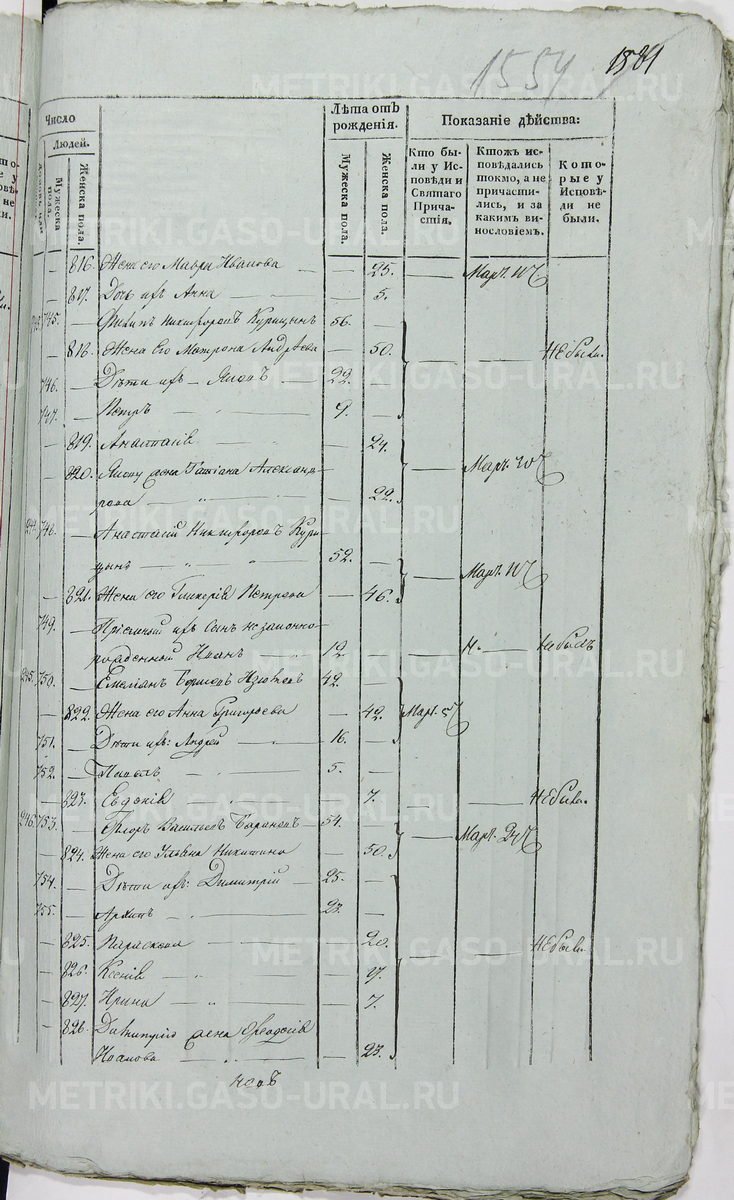 1554
1581
METRIKI.GASO-URAL.RU
Число
Людей.
Мужеска пола.
Женска пола.
Лѣта отъ рожденія.
Мужеска пола.
Женска пола.
Показаніе дѣйства:
Кто бы-
ли у Ис-
повѣди и
Святаго
Прича-
стія.
Ктожъ ис-
повѣдались
токмо, а не
причасти-
лись, и за
какимъ ви-
нословіемъ.
Кото-
рые у
Исповѣ-
ди не
были.
— 816. Жена его Мавра Иванова — 25. Март.
— 817. Дочь ихъ Анна — 5.
745. — Никифоровъ Курицынъ 56. —
— 818. Жена Его Матрона Андрѣева — 50. — Не были.
746. — Дѣти ихъ — 22. —
747. — Петръ — 9. —
— 819. Анастасія — 24.
— 820. жена Татіана Александ-
рова — 22. Март.
748. — Анастасій Никифоровъ Кури-
цынъ — 52. —
— 821. Жена его Гликерія Петрова — 46. — Март.
749. — Пріемный ихъ сынъ незаконно-
рожденный Иванъ 12. — не былъ
245. 750. — Емельянъ Борисовъ 42. —
— 822. Жена его Анна Григорьева — 42. Март.
751. — Дѣти ихъ: Андрей — 16. —
752. — Павелъ — 5. —
— 823. Евдокія — 7. — Не были.
246. 753. — Егоръ Васильевъ Барановъ — 54. — Март.
— 824. Жена его Ульяна Никитина — 50.
754. — Дѣти ихъ: Димитрій — 25. —
755. — Архипъ — 23. —
— 825. Параскева — 20. Не были.
— 826. Ксенія — 17.
— 827. Ирина — 7.
— 828. Димитрія жена Ѳеодосія
Иванова — 23.